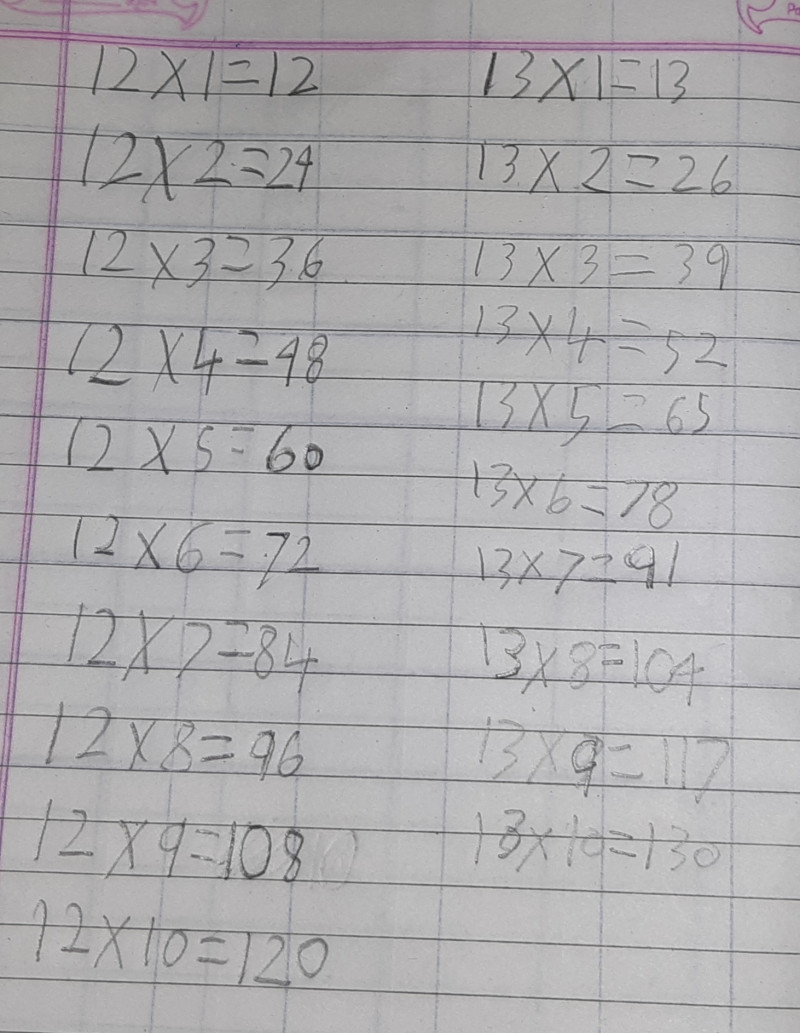 12×1=12
12×2=24
12×3=36
12×4=48
12×5=60
12×6=72
12×7=84
12×8=96
12×9=108
12×10=120
13×1=13
13×2=26
13×3=39
13×4=52
13×5=65
13×6=78
13×7=91
13×8=104
13×9=117
13×10=130